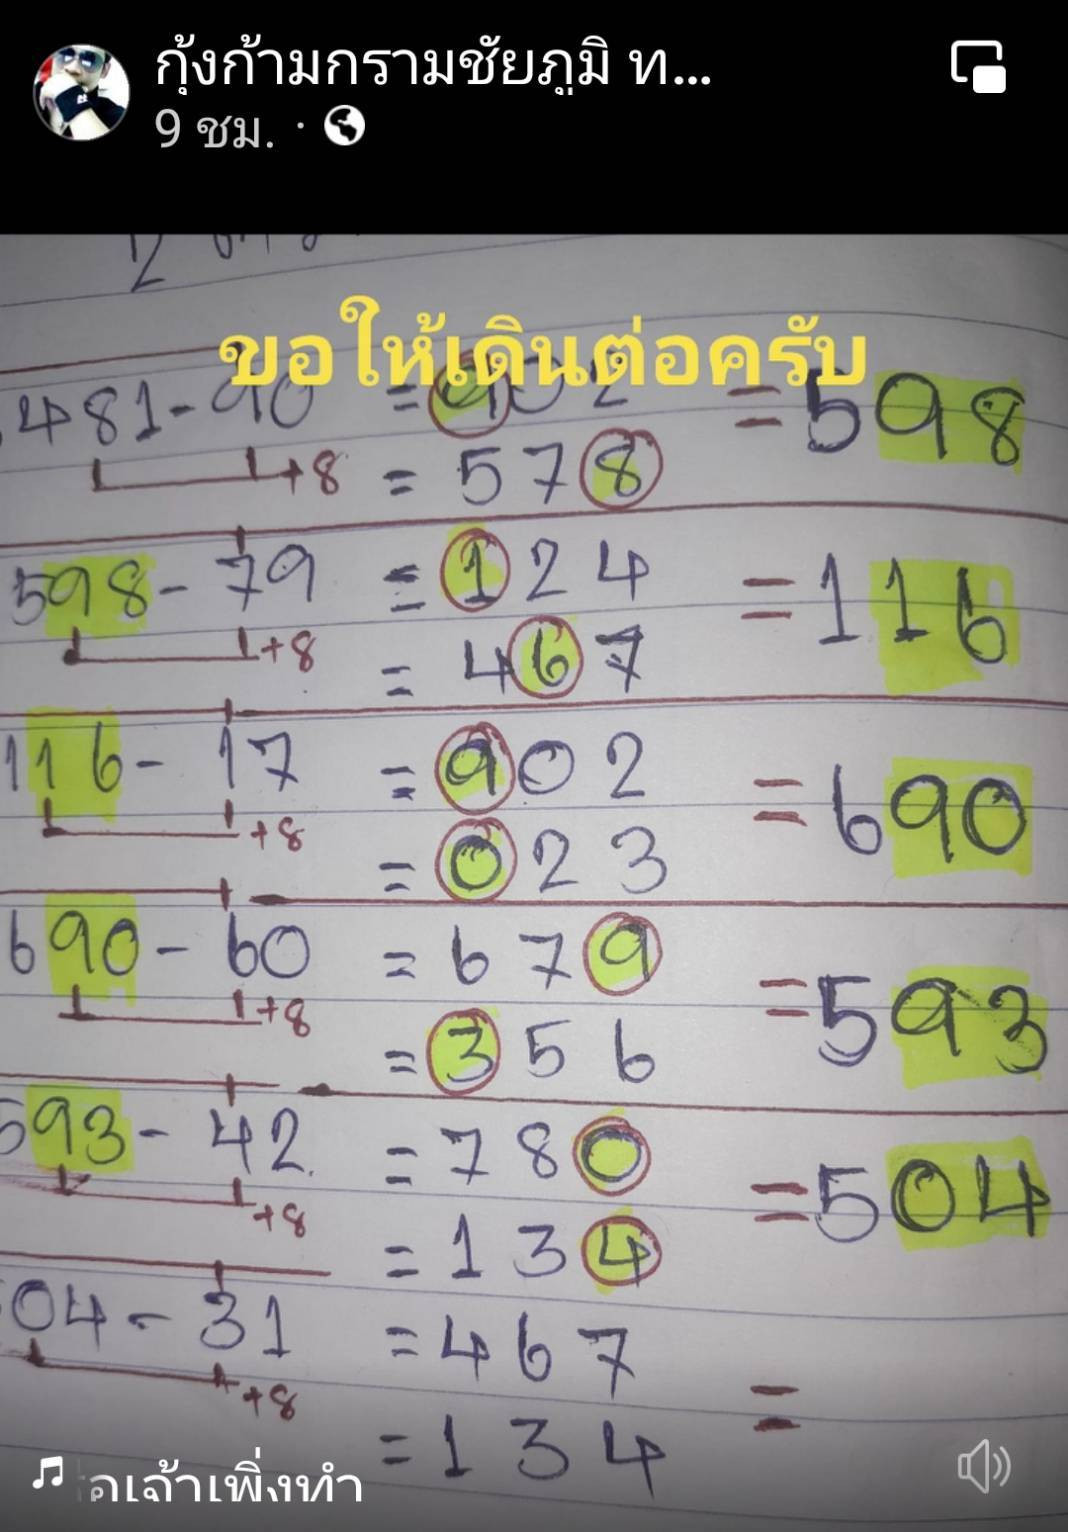 กุ้งก้ามกรามชัยภูมิ ท...
9 ชม. ·
ขอให้เดินต่อครับ
481-90 = 902 = 598
+8 = 578
598-79 = 124 = 116
+8 = 467
116-17 = 902 = 690
+8 = 023
690-60 = 679 = 593
+8 = 356
593-42 = 780 = 504
+8 = 134
04-31 = 467 =
+8 = 134
อเจ้าเพิ่งทำ